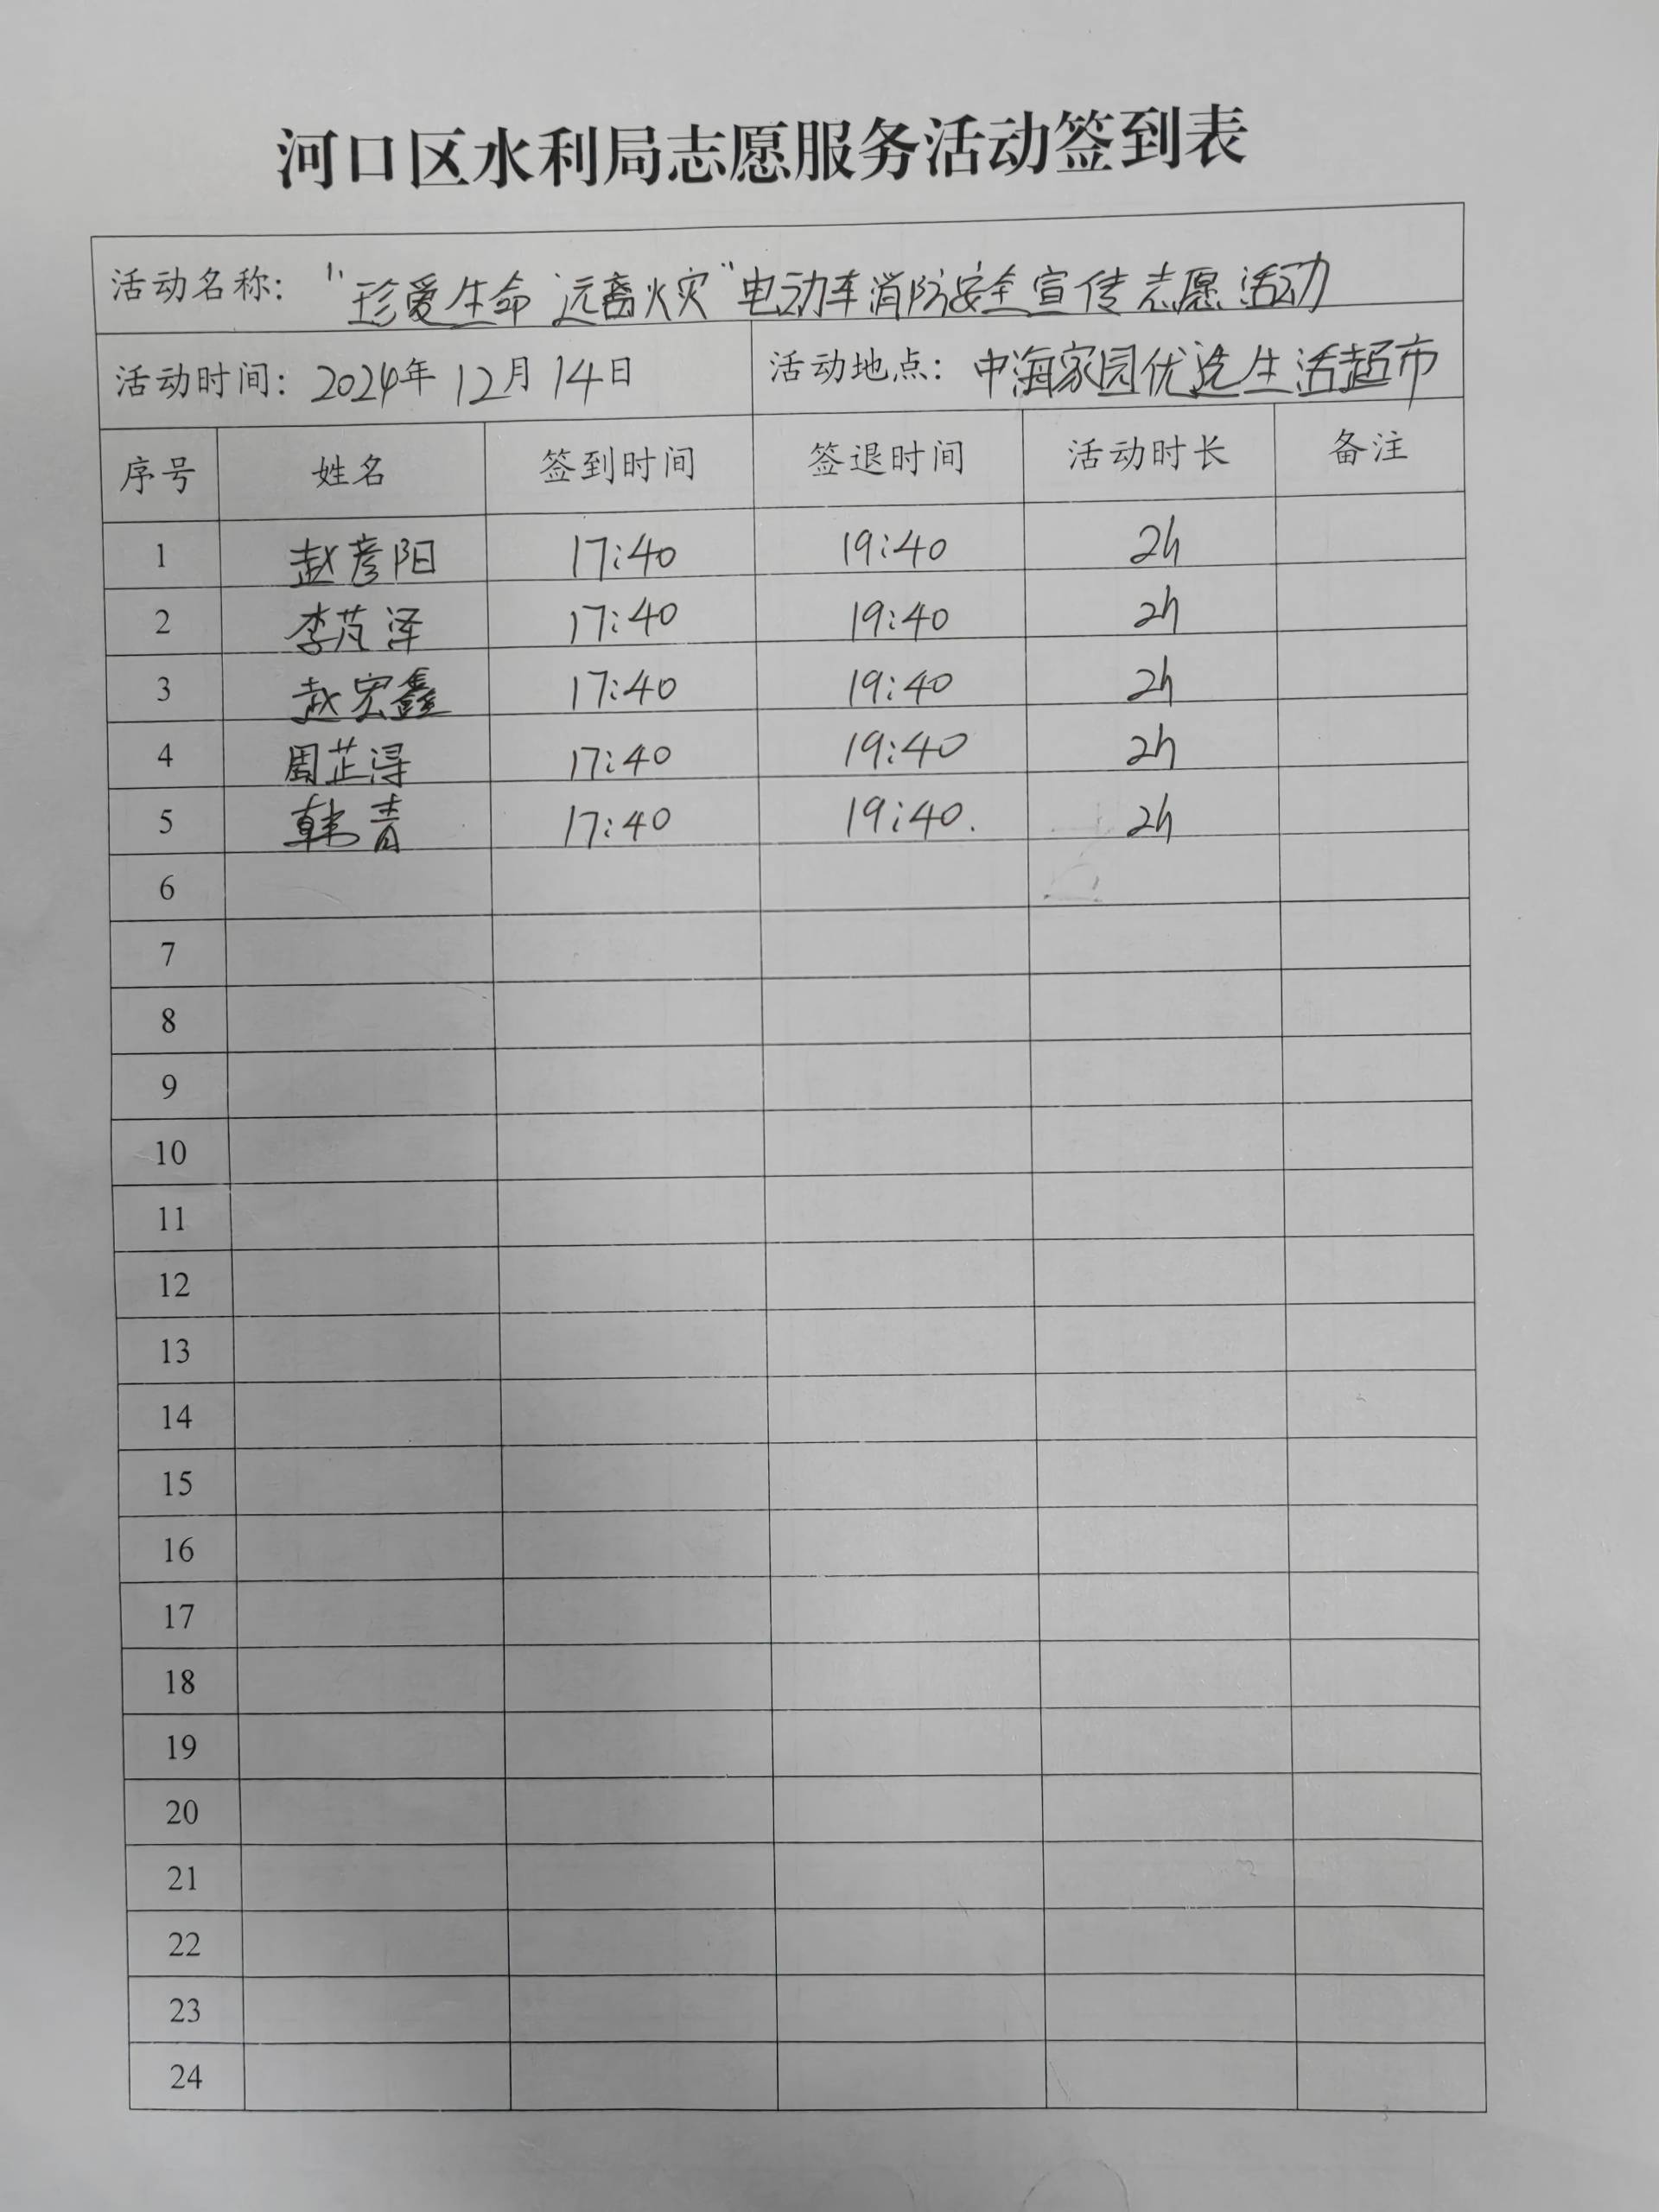 河口区水利局志愿服务活动签到表
活动名称: “珍爱生命 远离火灾”电动车消防安全宣传志愿活动
活动时间: 2024年 12月 14日 活动地点: 中海家园优选生活超市
序号 姓名 签到时间 签退时间 活动时长 备注
1 赵彦阳 17:40 19:40 2h
2 李芃泽 17:40 19:40 2h
3 赵宏鑫 17:40 19:40 2h
4 周芷浔 17:40 19:40 2h
5 韩青 17:40 19:40. 2h
6
7
8
9
10
11
12
13
14
15
16
17
18
19
20
21
22
23
24